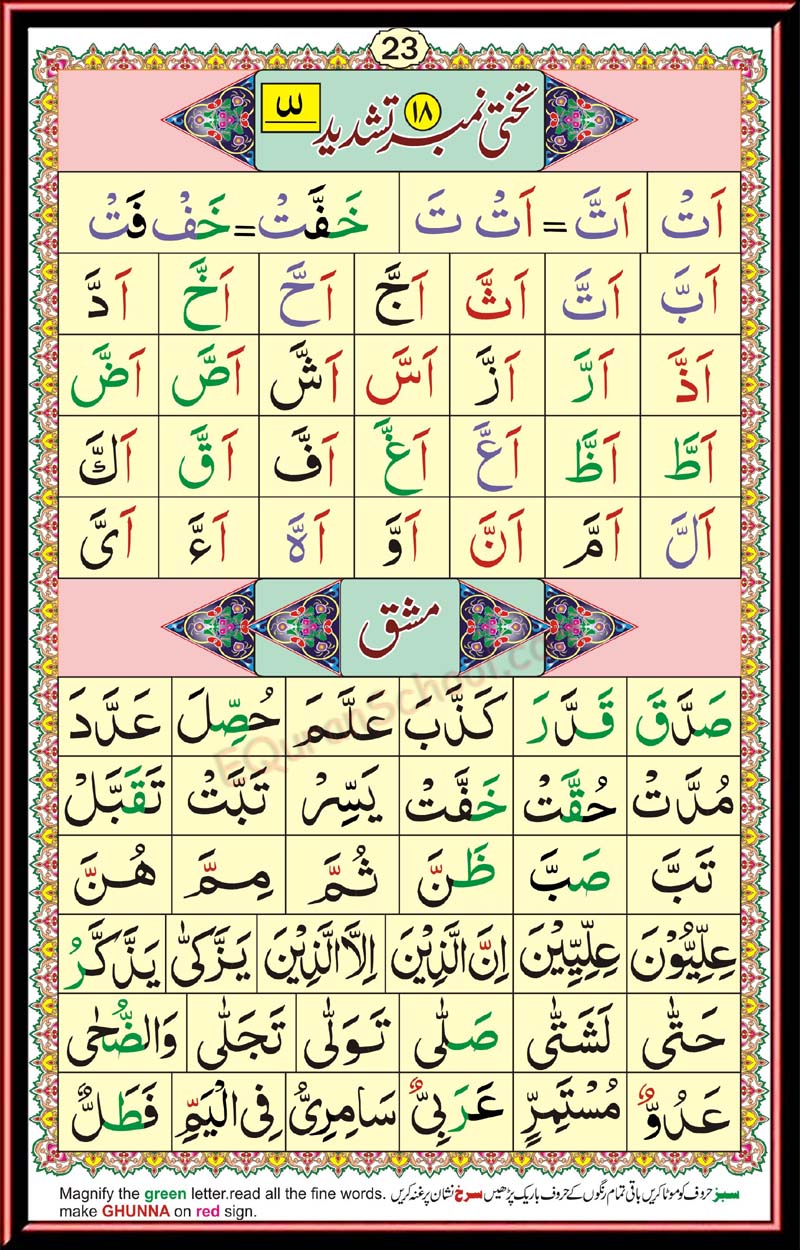 23
تختی نمبر ۱۸ تشدید
ـّ
اَتْ اَتَّ = اَتْ تَ خَفَّتْ = خَفْ فَتْ
اَبَّ اَتَّ اَثَّ اَجَّ اَحَّ اَخَّ اَدَّ
اَذَّ اَرَّ اَزَّ اَسَّ اَشَّ اَصَّ اَضَّ
اَطَّ اَظَّ اَعَّ اَغَّ اَفَّ اَقَّ اَكَّ
اَلَّ اَمَّ اَنَّ اَوَّ اَهَّ اَءَّ اَىَّ
مشق
صَدَّقَ قَدَّرَ كَذَّبَ عَلَّمَ حُصِّلَ عَدَّدَ
مُدَّتْ حُقَّتْ خَفَّتْ يَسِّرْ تَبَّتْ تَقَبَّلْ
تَبَّ صَبَّ ظَنَّ ثُمَّ مِمَّ هُنَّ
عِلِّيُّوْنَ عِلِّيِّيْنَ اِنَّ الَّذِيْنَ اِلَّا الَّذِيْنَ يَزَّكّٰى يَذَّكَّرُ
حَتّٰى لَشَتّٰى صَلّٰى تَوَلّٰى تَجَلّٰى وَالضُّحٰى
عَدُوٌّ مُسْتَمِرٍّ عَرَبِىٌّ سَامِرِىُّ فِى الْيَمِّ فَطَلٌّ
EQuranSchool.co
Magnify the green letter.read all the fine words. سبز حروف کو موٹا کریں باقی تمام رنگوں کے حروف باریک پڑھیں سرخ نشان پر غنہ کریں
make GHUNNA on red sign.